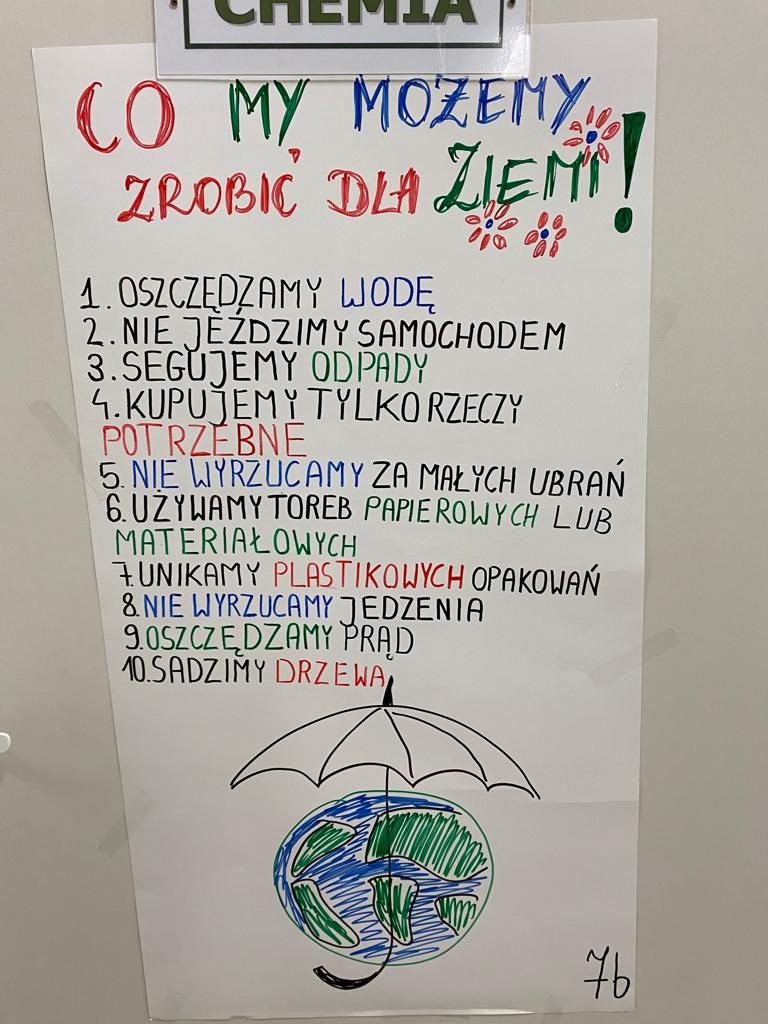 CHEMIA
CO MY MOŻEMY
ZROBIĆ DLA ZIEMI!
1. OSZCZĘDZAMY WODĘ
2. NIE JEŹDZIMY SAMOCHODEM
3. SEGUJEMY ODPADY
4. KUPUJEMY TYLKO RZECZY
POTRZEBNE
5. NIE WYRZUCAMY ZA MAŁYCH UBRAŃ
6. UŻYWAMY TOREB PAPIEROWYCH LUB
MATERIAŁOWYCH
7. UNIKAMY PLASTIKOWYCH OPAKOWAŃ
8. NIE WYRZUCAMY JEDZENIA
9. OSZCZĘDZAMY PRĄD
10. SADZIMY DRZEWA
7b